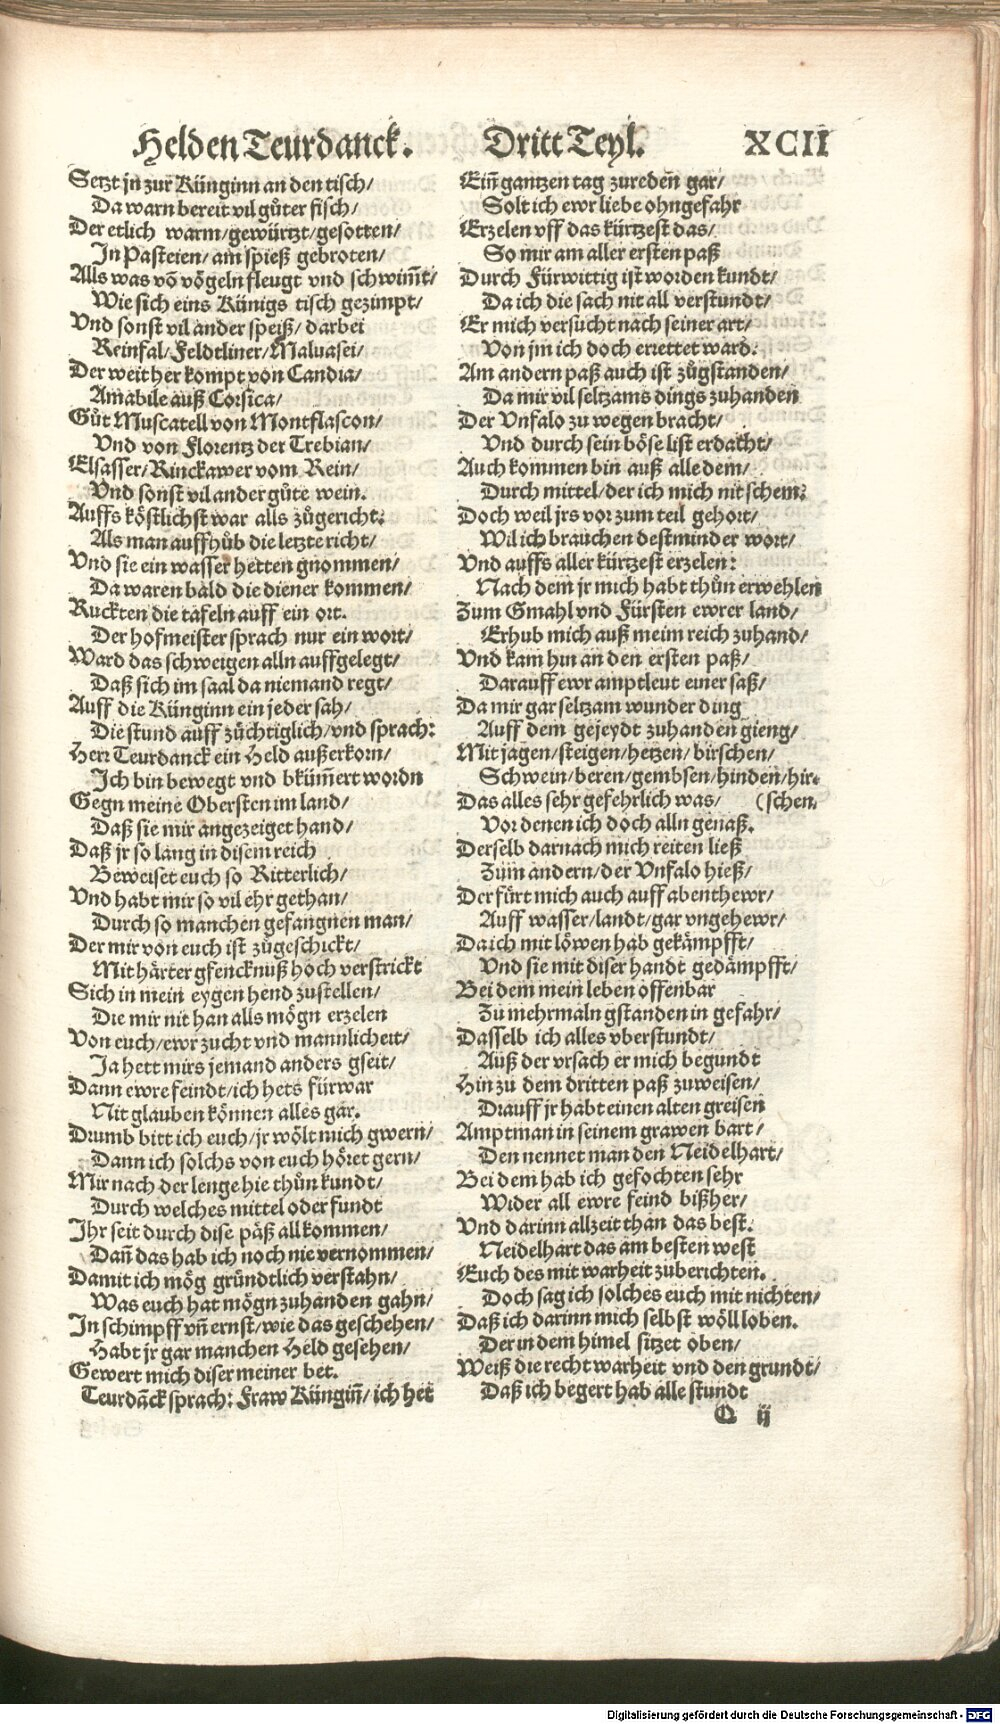 Helden Teurdanck. Dritt Teyl. XCII
Setzt jn zur Künginn an den tisch/
Da warn bereit vil gůter fisch/
Der etlich warm/gewürtzt/gesotten/
In Pasteien/am spieß gebroten/
Alls was võ vögeln fleugt vnd schwim̃t/
Wie sich eins Künigs tisch gezimpt/
Vnd sonst vil ander speiß/darbei
Reinfal/Feldtliner/Maluasei/
Der weit her kompt von Candia/
Amabile auß Corsica/
Gůt Muscatell von Montflascon/
Vnd von Florentz der Trebian/
Elsasser/Rinckawer vom Rein/
Vnd sonst vil ander gůte wein.
Auffs köstlichst war alls zůgericht:
Als man auffhůb die letzte richt/
Vnd sie ein wasser hetten gnommen/
Da waren bald die diener kommen/
Ruckten die tafeln auff ein ort.
Der hofmeister sprach nur ein wort/
Ward das schweigen alln auffgelegt/
Daß sich im saal da niemand regt/
Auff die Künginn ein jeder sah/
Die stund auff züchtiglich/vnd sprach:
Herr Teurdanck ein Held außerkorn/
Ich bin bewegt vnd bküm̃ert wordn
Gegn meine Obersten im land/
Daß sie mir angezeiget hand/
Daß jr so lang in disem reich
Beweiset euch so Ritterlich/
Vnd habt mir so vil ehr gethan/
Durch so manchen gefangnen man/
Der mir von euch ist zůgeschickt/
Mit härter gfencknüß hoch verstrickt
Sich in mein eygen hend zustellen/
Die mir nit han alls mögn erzelen
Von euch/ewr zucht vnd mannlicheit/
Ja hett mirs jemand anders gseit/
Dann ewre feindt/ich hets fürwar
Nit glauben können alles gar.
Drumb bitt ich euch/jr wölt mich gwern/
Dann ich solchs von euch höret gern/
Mir nach der lenge hie thůn kundt/
Durch welches mittel oder fundt
Ihr seit durch dise päß all kommen/
Dañ das hab ich noch nie vernommen/
Damit ich mög gründtlich verstahn/
Was euch hat mögn zuhanden gahn/
In schimpff vñ ernst/wie das geschehen/
Habt jr gar manchen Held gesehen/
Gewert mich diser meiner bet.
Teurdãck sprach: Fraw Küngiñ/ich het
Eiñ gantzen tag zuredeñ gar/
Solt ich ewr liebe ohngefahr
Erzelen vff das kürtzest das/
So mir am aller ersten paß
Durch Fürwittig ist worden kundt/
Da ich die sach nit all verstundt/
Er mich versucht nach seiner art/
Von jm ich doch errettet ward:
Am andern paß auch ist zůgstanden/
Da mir vil seltzams dings zuhanden
Der Vnfalo zu wegen bracht/
Vnd durch sein böse list erdacht/
Auch kommen bin auß alle dem/
Durch mittel/der ich mich nit schem:
Doch weil jrs vor zum teil gehort/
Wil ich brauchen destminder wort/
Vnd auffs aller kürtzest erzelen:
Nach dem jr mich habt thůn erwehlen
Zum Gmahl vnd Fürsten ewrer land/
Erhub mich auß meim reich zuhand/
Vnd kam hin an den ersten paß/
Darauff ewr amptleut einer saß/
Da mir gar seltzam wunder ding
Auff dem gejeydt zuhanden gieng/
Mit jagen/steigen/hetzen/birschen/
Schwein/beren/gembsen/hinden/hir-
Das alles sehr gefehrlich was/ (schen.
Vor denen ich doch alln genaß.
Derselb darnach mich reiten ließ
Zům andern/der Vnfalo hieß/
Der fürt mich auch auff abenthewr/
Auff wasser/landt/gar vngehewr/
Da ich mit löwen hab gekämpfft/
Vnd sie mit diser handt gedämpfft/
Bei dem mein leben offenbar
Zu mehrmaln gstanden in gefahr/
Dasselb ich alles vberstundt/
Auß der vrsach er mich begundt
Hin zu dem dritten paß zuweisen/
Drauff jr habt einen alten greisen
Amptman in seinem grawen bart/
Den nennet man den Neidelhart/
Bei dem hab ich gefochten sehr
Wider all ewre feind bißher/
Vnd darinn allzeit than das best.
Neidelhart das am besten west
Euch des mit warheit zuberichten.
Doch sag ich solches euch mit nichten/
Daß ich darinn mich selbst wöll loben.
Der in dem himel sitzet oben/
Weiß die recht warheit vnd den grundt/
Daß ich begert hab alle stundt
Q ij
Digitalisierung gefördert durch die Deutsche Forschungsgemeinschaft - DFG